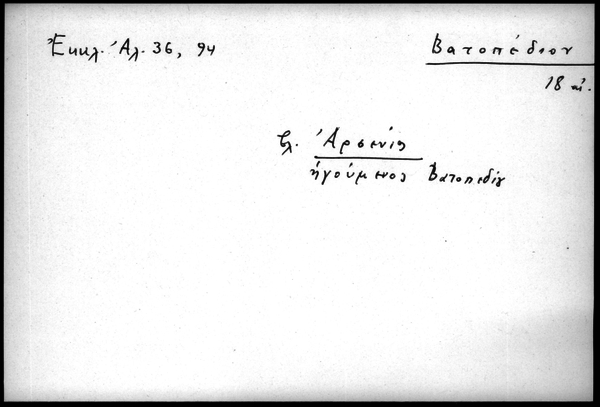 Ἐκκλ. Ἀλ. 36, 94
Βατοπέδιον
18 αἰ.
βλ. Ἀρσένιος
ἡγούμενος Βατοπεδίου